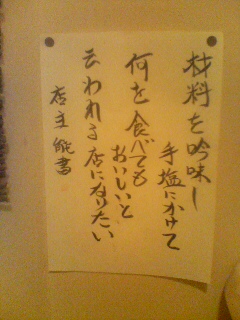 材料を吟味し
手塩にかけて
何を食べても
おいしいと
云われる店になりたい
店主 能書